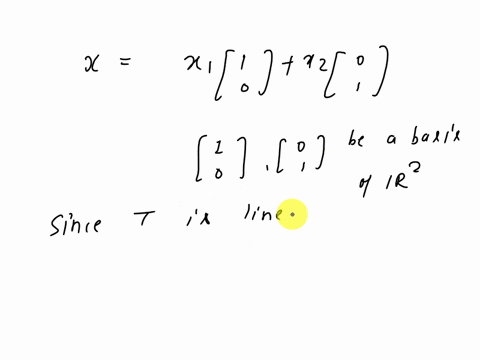 x = x₁ [1 0] + x₂ [0 1]
[1 0] , [0 1] be a basis
of IR²
Since T is line